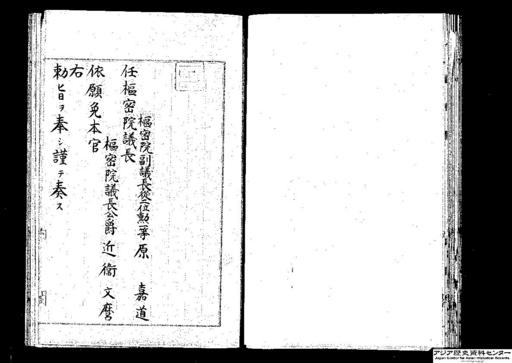 樞密院副議長從二位勲一等原　嘉道
任樞密院議長
樞密院議長公爵近衞　文麿
依願免本官
右
勅旨ヲ奉シ謹テ奏ス
内閣
アジア歴史資料センター
Japan Center for Asian Historical Records